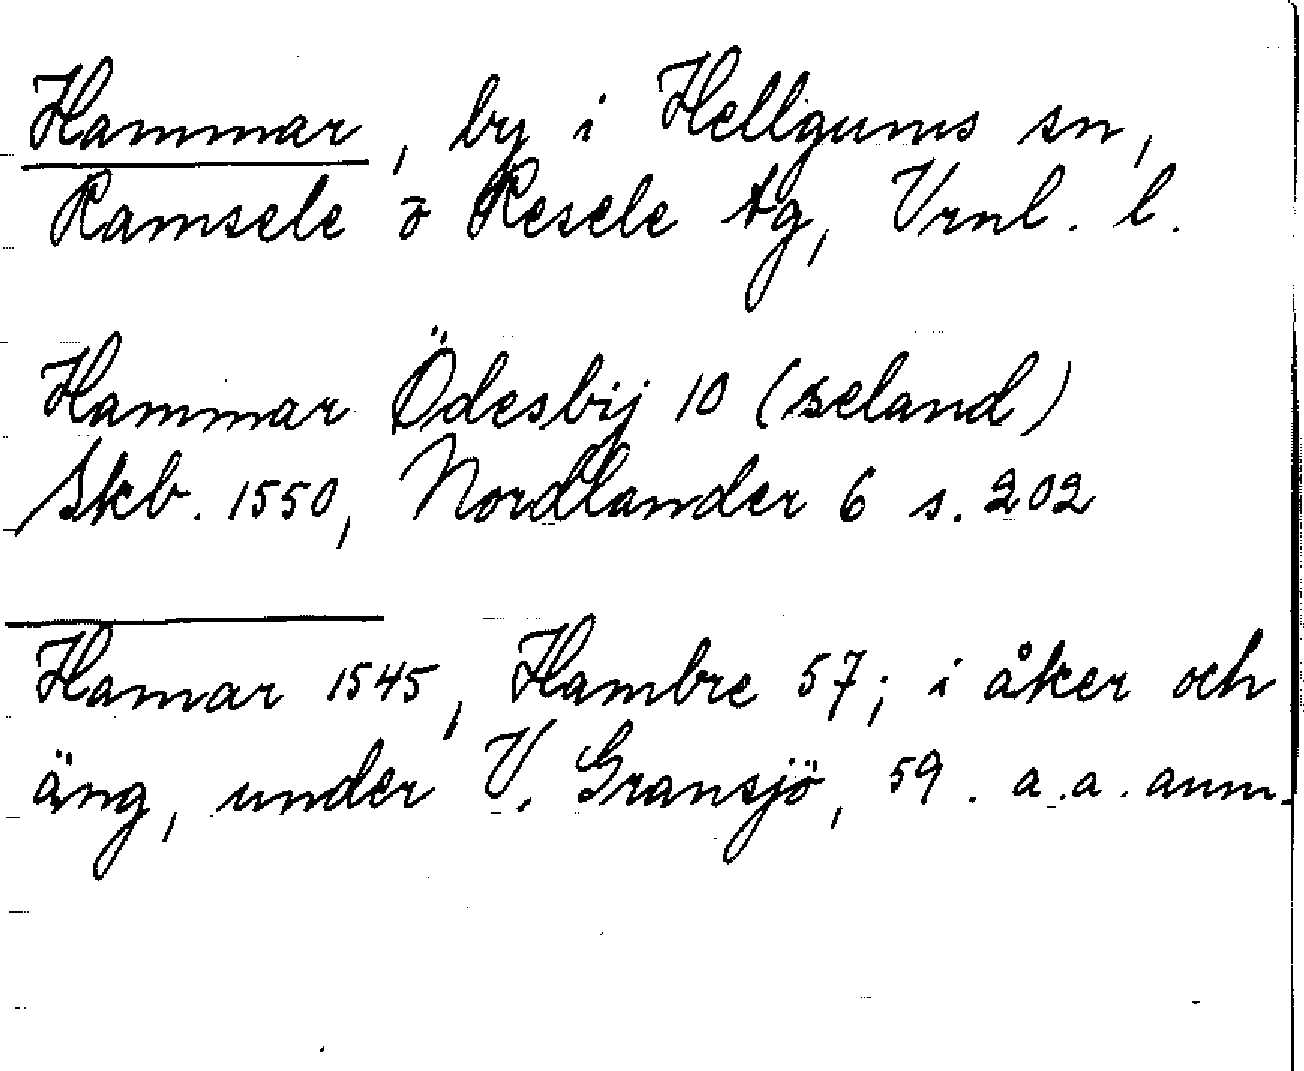 Hammar, by i Hellgums sn,
Ramsele o Resele tg, Vrnl. l.
Hammar Ödesbij 10 (seland)
Skb. 1550, Nordlander 6 s. 202
Hamar 1545, Hambre 57; i åker och
äng, under V. Gransjö, 59. a.a. anm.